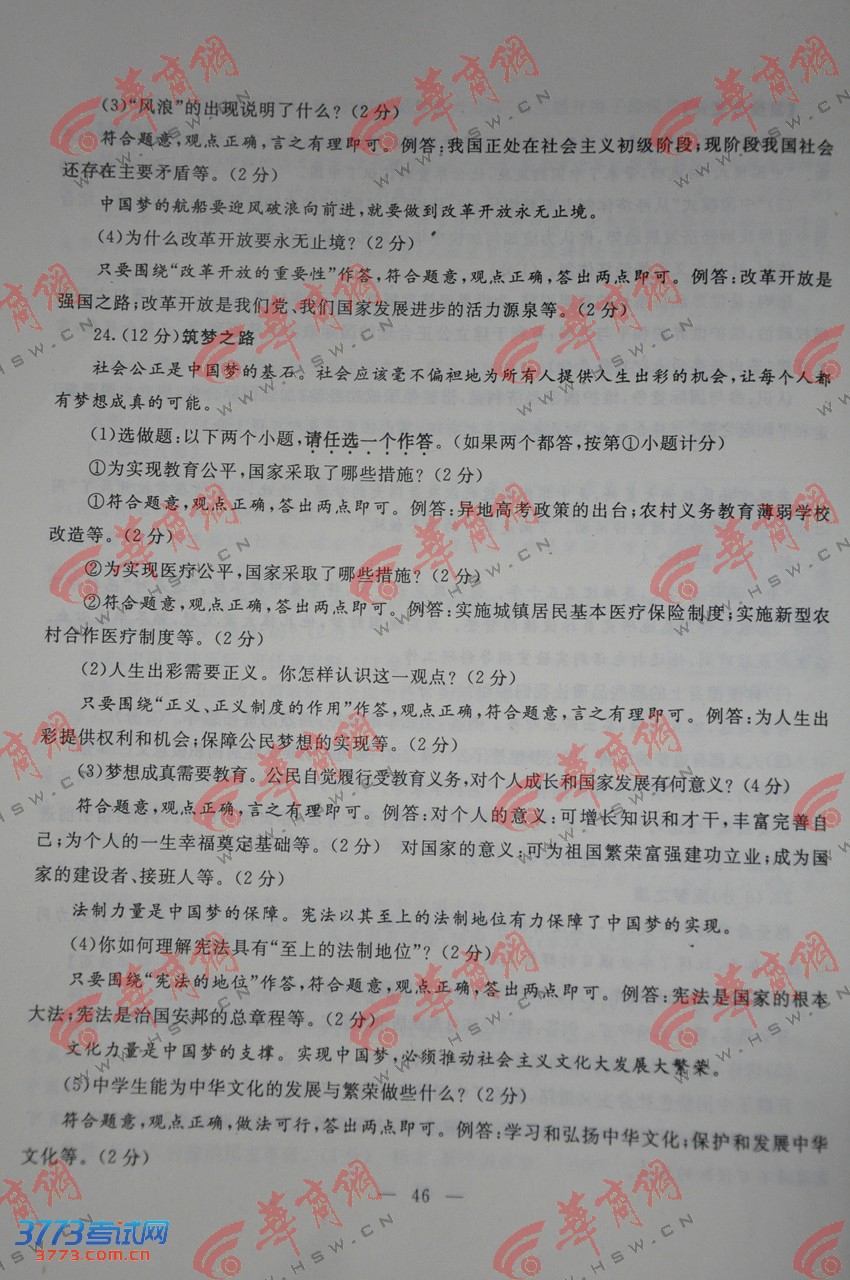 (3)“风浪”的出现说明了什么?(2分)
符合题意,观点正确,言之有理即可。例答:我国正处在社会主义初级阶段;现阶段我国社会
还存在主要矛盾等。(2分)
中国梦的航船要迎风破浪向前进,就要做到改革开放永无止境。
(4)为什么改革开放要永无止境?(2分)
只要围绕“改革开放的重要性”作答,符合题意,观点正确,答出两点即可。例答:改革开放是
强国之路;改革开放是我们党、我们国家发展进步的活力源泉等。(2分)
24.(12分)筑梦之路
社会公正是中国梦的基石。社会应该毫不偏袒地为所有人提供人生出彩的机会,让每个人都
有梦想成真的可能。
(1)选做题:以下两个小题,请任选一个作答。(如果两个都答,按第①小题计分)
①为实现教育公平,国家采取了哪些措施?(2分)
①符合题意,观点正确,答出两点即可。例答:异地高考政策的出台;农村义务教育薄弱学校
改造等。(2分)
②为实现医疗公平,国家采取了哪些措施?(2分)
②符合题意,观点正确,答出两点即可。例答:实施城镇居民基本医疗保险制度;实施新型农
村合作医疗制度等。(2分)
(2)人生出彩需要正义。你怎样认识这一观点?(2分)
只要围绕“正义、正义制度的作用”作答,观点正确,符合题意,言之有理即可。例答:为人生出
彩提供权利和机会;保障公民梦想的实现等。(2分)
(3)梦想成真需要教育。公民自觉履行受教育义务,对个人成长和国家发展有何意义?(4分)
符合题意,观点正确,言之有理即可。例答:对个人的意义:可增长知识和才干,丰富完善自
己;为个人的一生幸福奠定基础等。(2分) 对国家的意义:可为祖国繁荣富强建功立业;成为国
家的建设者、接班人等。(2分)
法制力量是中国梦的保障。宪法以其至上的法制地位有力保障了中国梦的实现。
(4)你如何理解宪法具有“至上的法制地位”?(2分)
只要围绕“宪法的地位”作答,符合题意,观点正确,答出两点即可。例答:宪法是国家的根本
大法;宪法是治国安邦的总章程等。(2分)
文化力量是中国梦的支撑。实现中国梦,必须推动社会主义文化大发展大繁荣。
(5)中学生能为中华文化的发展与繁荣做些什么?(2分)
符合题意,观点正确,做法可行,答出两点即可。例答:学习和弘扬中华文化;保护和发展中华
文化等。(2分)
— 46 —
3773考试网
3773.com.cn
华商网
WWW.HSW.CN